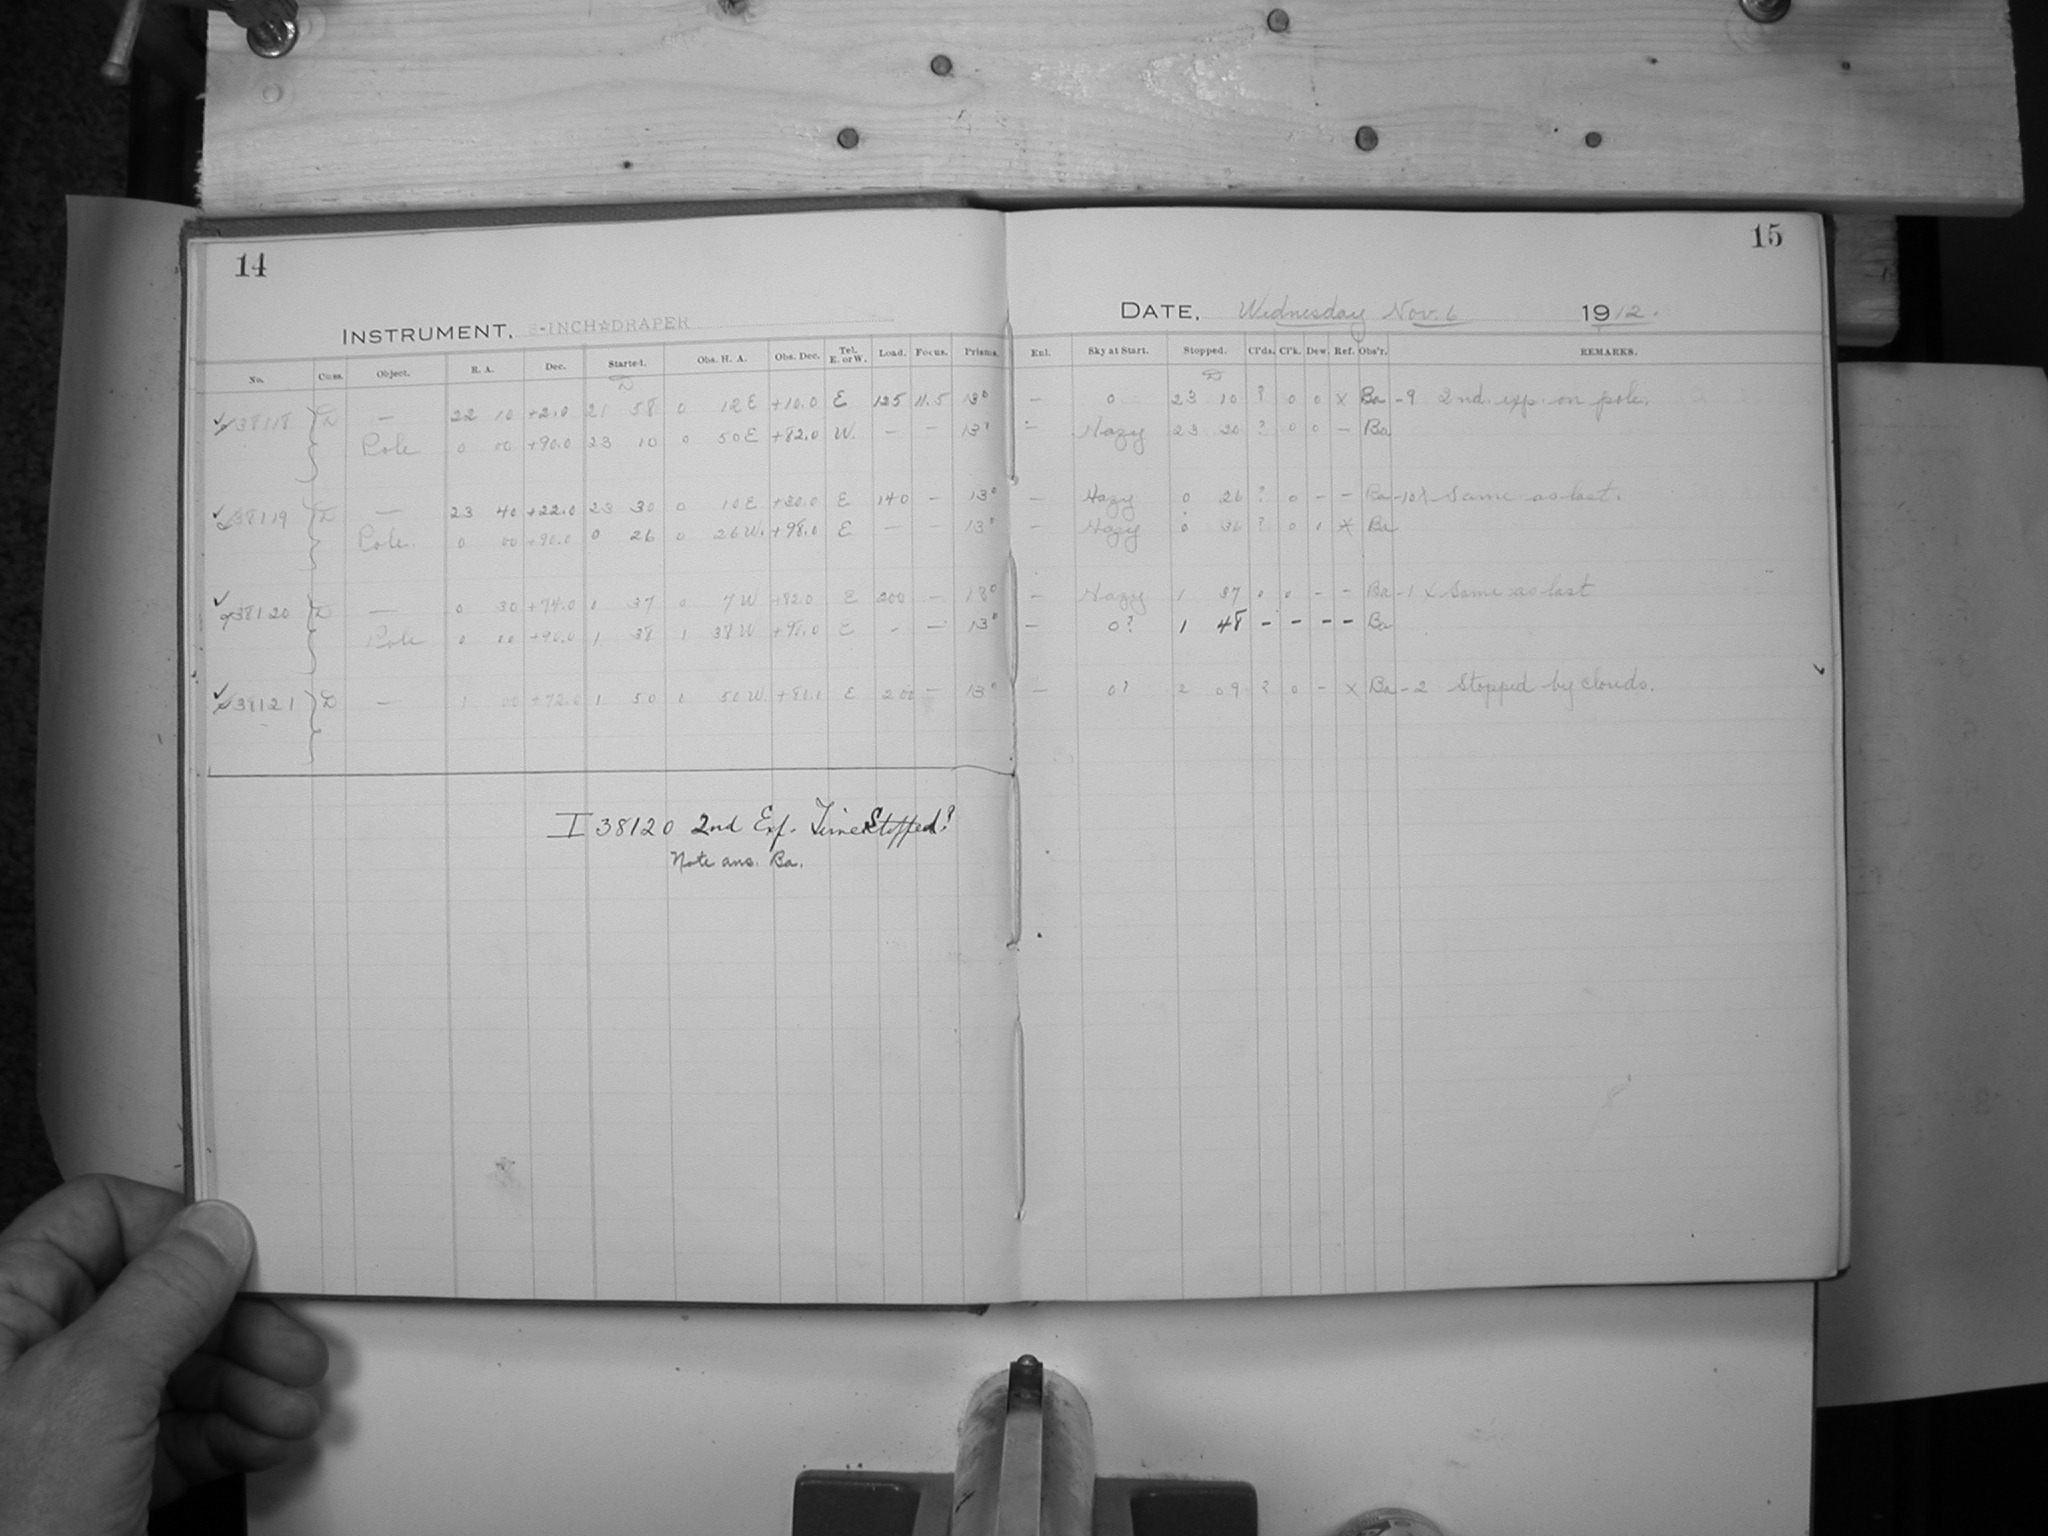 14
15
INSTRUMENT, 8-INCH☆DRAPER
DATE, Wednesday Nov. 6 1912.
No. Class. Object. R. A. Dec. Started. Obs. H. A. Obs. Dec. Tel. E. or W. Load. Focus. Prisms. Enl. Sky at Start. Stopped. Cl'ds. Cl'k. Dew. Ref. Obs'r. REMARKS.
D D
38118 D — 22 10 +2.0 21 58 0 12 E +10.0 E 125 11.5 13° — 0 23 10 ? 0 0 X Ba -9 2nd. exp. on pole.
Pole. 0 00 +90.0 23 10 0 50 E +82.0 W. — — 13° — Hazy 23 20 ? 0 0 — Ba
38119 D — 23 40 +22.0 23 30 0 10 E +30.0 E 140 — 13° — Hazy 0 26 ? 0 — — Ba -10 X Same as last.
Pole. 0 00 +90.0 0 26 0 26 W. +98.0 E — — 13° — Hazy 0 36 ? 0 0 X Ba
38120 D — 0 30 +74.0 0 37 0 7 W +82.0 E 200 — 13° — Hazy 1 37 0 0 — — Ba -1 X Same as last
Pole 0 00 +90.0 1 38 1 38 W +98.0 E — — 13° — 0? 1 48 — — — — Ba
38121 D — 1 00 +72.0 1 50 0 50 W +80.0 E 200 — 13° — 0? 2 09 ? 0 — X Ba -2 Stopped by clouds.
I 38120 2nd Exp. Time Stopped?
Note ans. Ba.